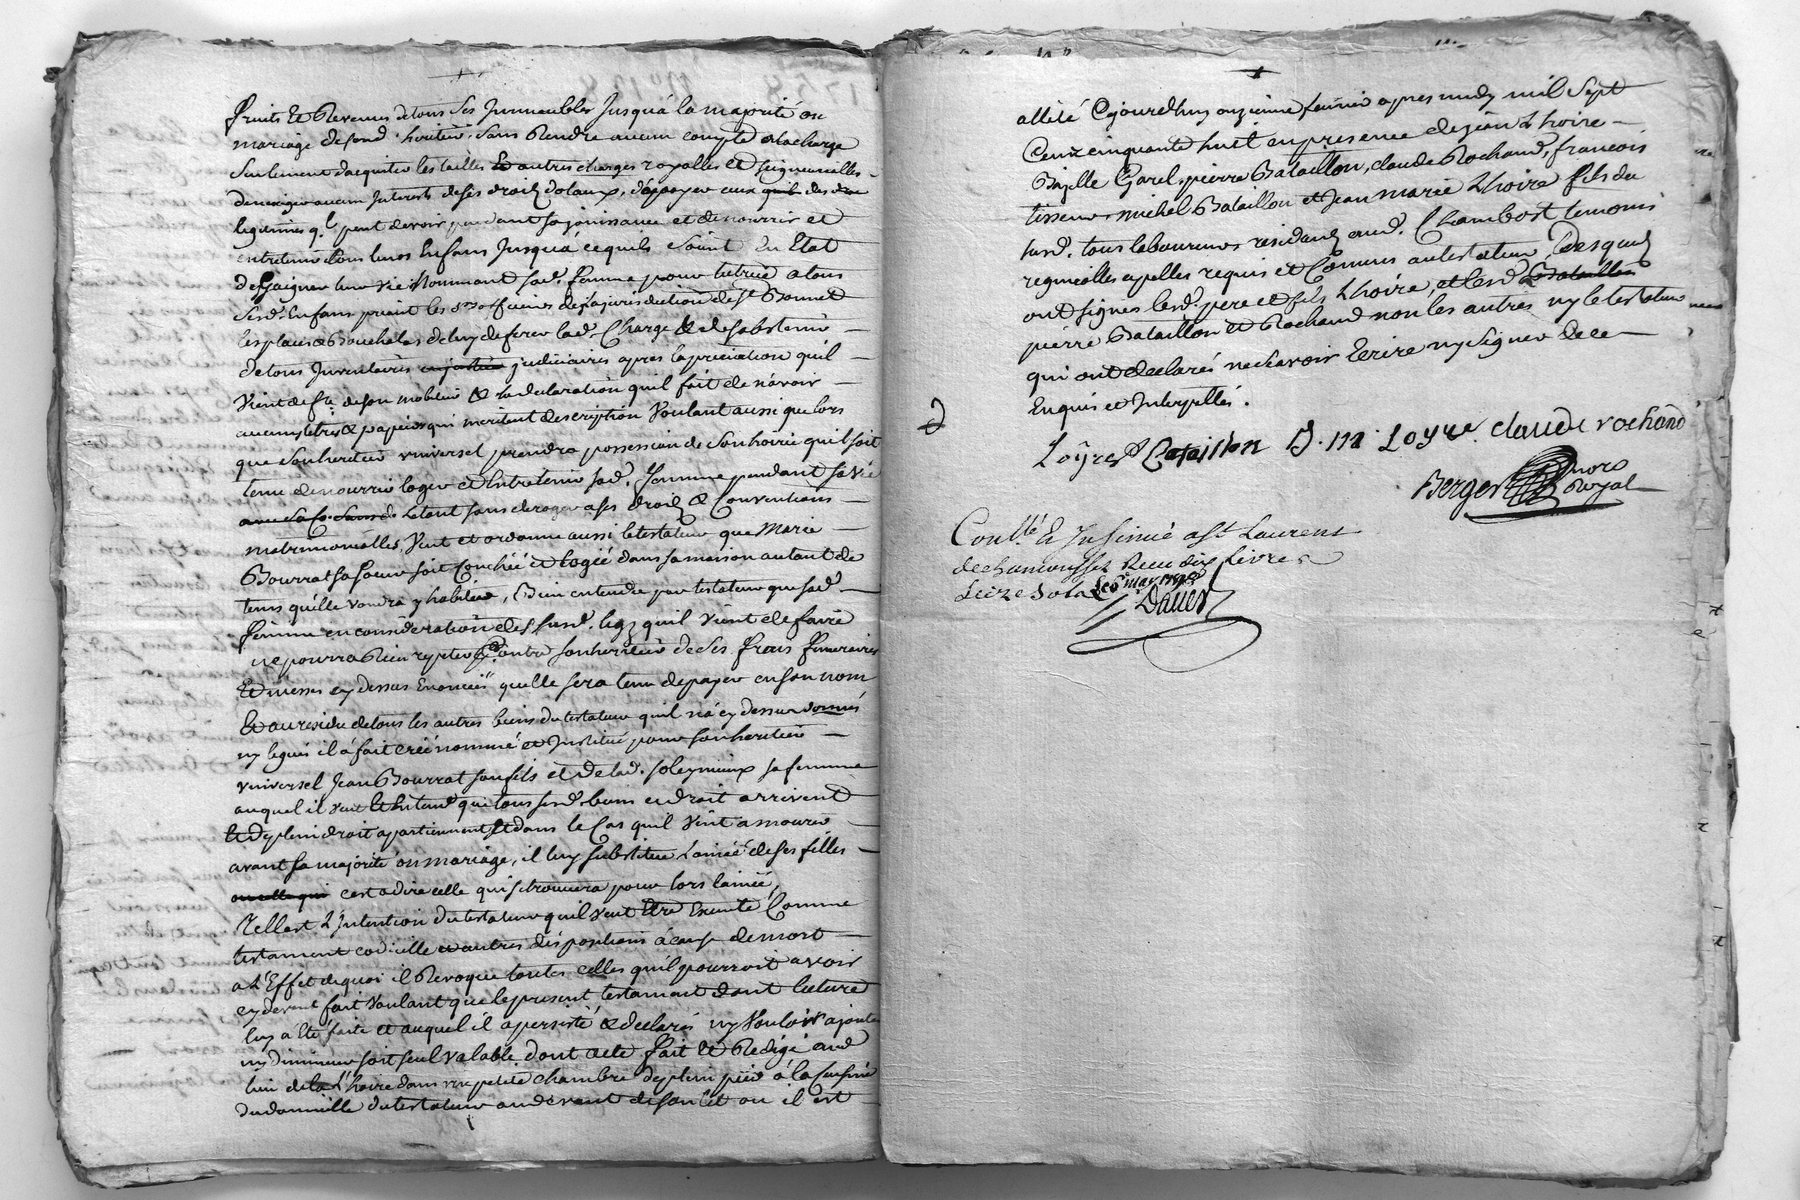 fruits Et Revenus de tous ses Immeubles Jusqu'à la majorité ou
mariage de sond. héritier sans Rendre aucun compte à la charge
seulement d'acquiter les tailles Et autres charges royalles et seigneurialles
de n'exiger aucun Interests de ses droits dotaux, de payer ceux des
legitimes q'l peut devoir pendant sa jouissance et de nourrir et
entretenir tous leurs Enfans Jusqu'a ce quils soient En Etat
de gaigner leur vie Nommant sad. femme pour tutrice a tous
sesd. Enfans priant les srs officiers de la jurisdiction de st Bonnet
les places & Bouchalas de luy deferer lad. Charge & de sabstenir
de tous Inventaires judiciaires apres la priciation quil
vient de fe de son mobilier & la declaration quil fait de n'avoir
aucuns titres & papiers qui meritent description Voulant aussi que lors
que son heritier universel prendra possession de son hoirie qu'il soit
tenu de nourrir loger et Entretenir sad. femme pendant sa vie
Letout sans deroger a ses droits & Conventions
matrimonialles, Veut et ordonne aussi le testateur que Marie
Bourrat sa soeur soit Couchéé et logée dans sa maison autant de
tems qu'elle voudra y habiter, Bien entendu par testateur que sad.
femme en considération des susd. legz quil vient de faire
ne pourra Rien repeter Contre son heritier de ses frais funeraires
Et messes cy dessus Enoncées quelle sera tenue de payer en son nom
Et au residu de tous les autres biens du testateur quil n'a cy dessus donnés
ny legués il a fait créé nommé et Institué pour son heritier
universel Jean Bourrat son fils et de lad. soleymieux sa femme
auquel il veut Et Entend que tous sesd. biens et droit arrivent
Et de plein droit apartiennent Et dans le Cas quil Vint a mourir
avant sa majorité ou mariage, il luy substitue L'ainéé de ses filles
ou celle qui c'est a dire celle qui se trouvera pour lors lainéé,
Telle est L'Intention du testateur quil veut Etre Executé Comme
testament codicille et autres dispositions à cause de mort
a L'Effet de quoi il Revoque toutes celles quil pourroit avoir
cy devant fait voulant que le present testament dont lecture
luy a Eté faite et auquel il a persisté & declaré ny vouloir ajouter
ny diminuer soit seul valable dont acte fait Et Redigé aud
lieu de la L'hoire dans une petite chambre de plein pied à la Cuisine
du domicille du testateur au devant de son lit ou il est
allité Cejourdhuy onzieme fevrier apres midy mil sept
Cens cinquante huit en presence de jean Lhoire
Bizille Garel, pierre Bataillon, claude Rochand, francois
tisseur michel Bataillon et Jean marie Lhoire fils du
susd. tous laboureurs residants aud. Chambost temoins
regnicolles apelles requis et Connus au testateur Desquels
ont signes lesd. pere et fils Lhoire, et lesd Bataillon
pierre Bataillon et Rochand non les autres ny le testateur
qui ont declarés ne scavoir Ecrire ny signer de ce
Enquis et Interpellés.
Loÿre P Bataillon J. m. Loyre. claude rochand
Berger nore
Royal
Coullé & Insinué a St. Laurent
dechamousset Recu dix livres
seize sols Le 6 mars 1758
Daues